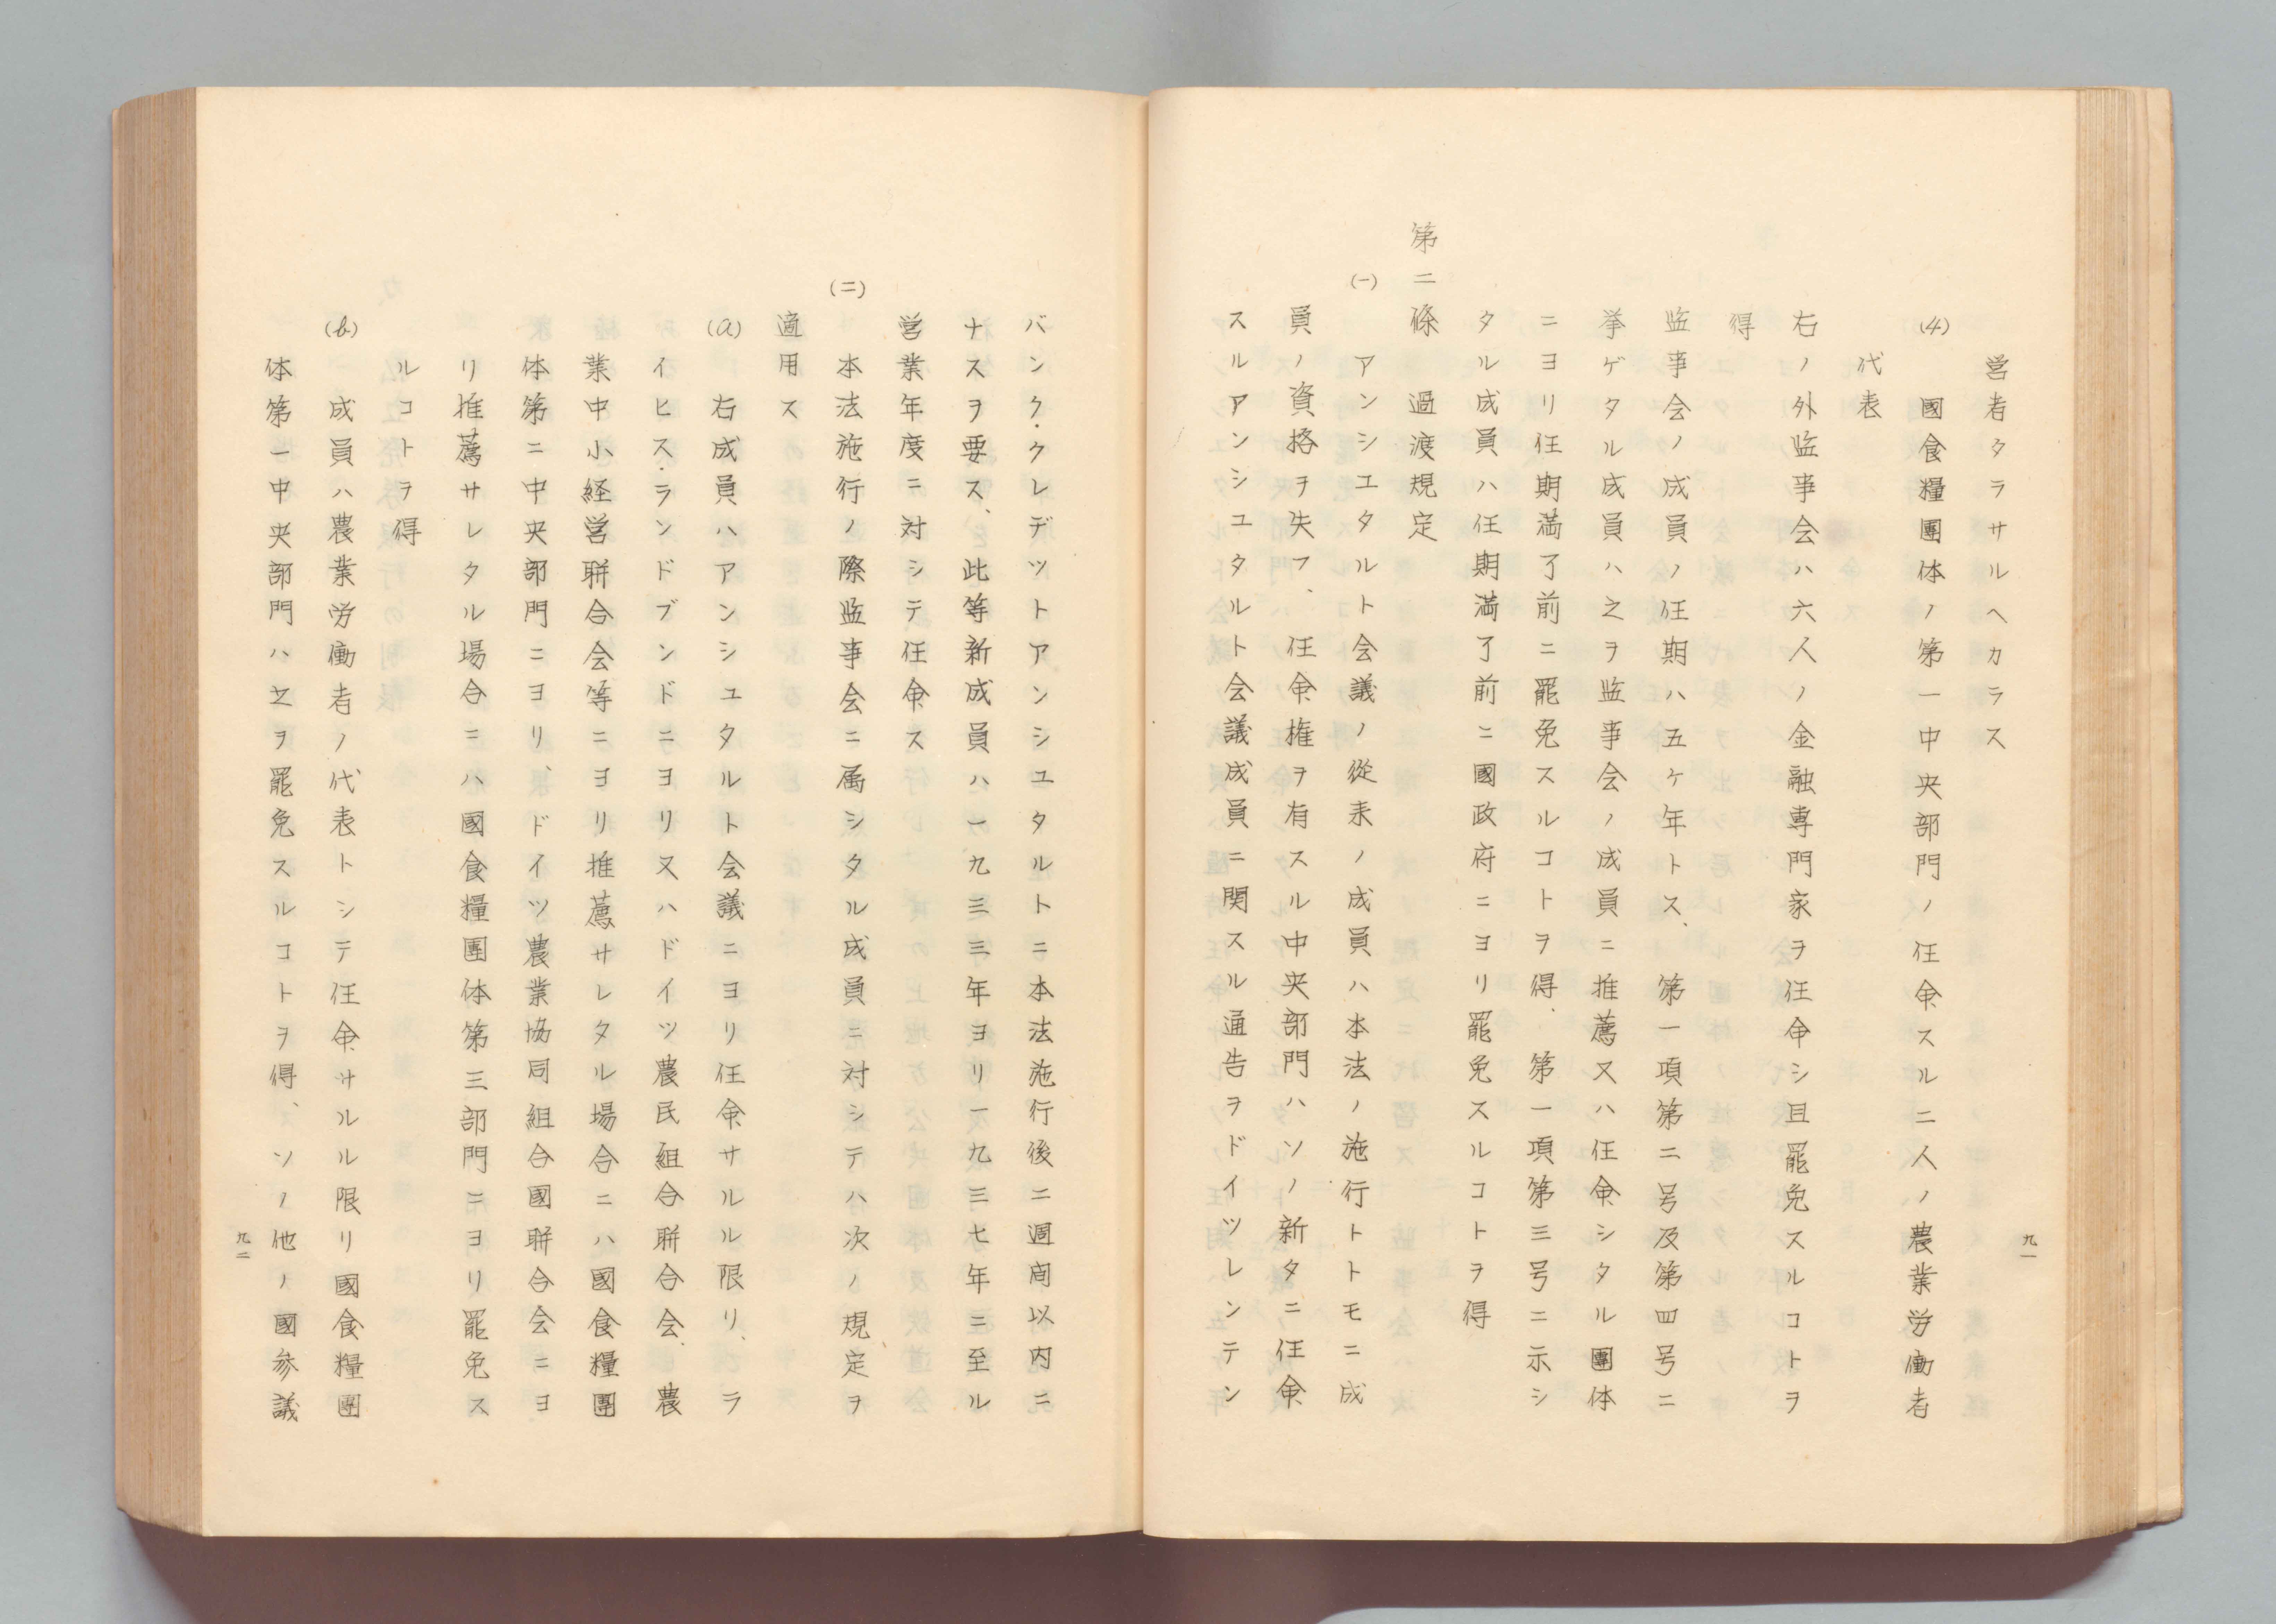 営者タラサルヘカラス
(4) 國食糧團体ノ第一中央部門ノ任命スル二人ノ農業労働者
代表
右ノ外監事会ハ六人ノ金融専門家ヲ任命シ且罷免スルコトヲ
得
監事会ノ成員ノ任期ハ五ケ年トス、第一項第二号及第四号ニ
挙ゲタル成員ハ之ヲ監事会ノ成員ニ推薦又ハ任命シタル團体
ニヨリ任期満了前ニ罷免スルコトヲ得、第一項第三号ニ示シ
タル成員ハ任期満了前ニ國政府ニヨリ罷免スルコトヲ得
第二條 過渡規定
(一) アンシユタルト会議ノ從来ノ成員ハ本法ノ施行トトモニ成
員ノ資格ヲ失フ、任命権ヲ有スル中央部門ハソノ新タニ任命
スルアンシユタルト会議成員ニ関スル通告ヲドイツレンテン
九一
バンク・クレデツトアンシユタルトニ本法施行後二週間以内ニ
ナスヲ要ス、此等新成員ハ一九三三年ヨリ一九三七年ニ至ル
営業年度ニ対シテ任命ス
(二) 本法施行ノ際監事会ニ属シタル成員ニ対シテハ次ノ規定ヲ
適用ス
(a) 右成員ハアンシユタルト会議ニヨリ任命サルル限リ、ラ
イヒス・ランドブンドニヨリ又ハドイツ農民組合聯合会、農
業中小経営聯合会等ニヨリ推薦サレタル場合ニハ國食糧團
体第二中央部門ニヨリ、ドイツ農業協同組合國聯合会ニヨ
リ推薦サレタル場合ニハ國食糧團体第三部門ニヨリ罷免ス
ルコトヲ得
(b) 成員ハ農業労働者ノ代表トシテ任命サルル限リ國食糧團
体第一中央部門ハ之ヲ罷免スルコトヲ得、ソノ他ノ國参議
九二